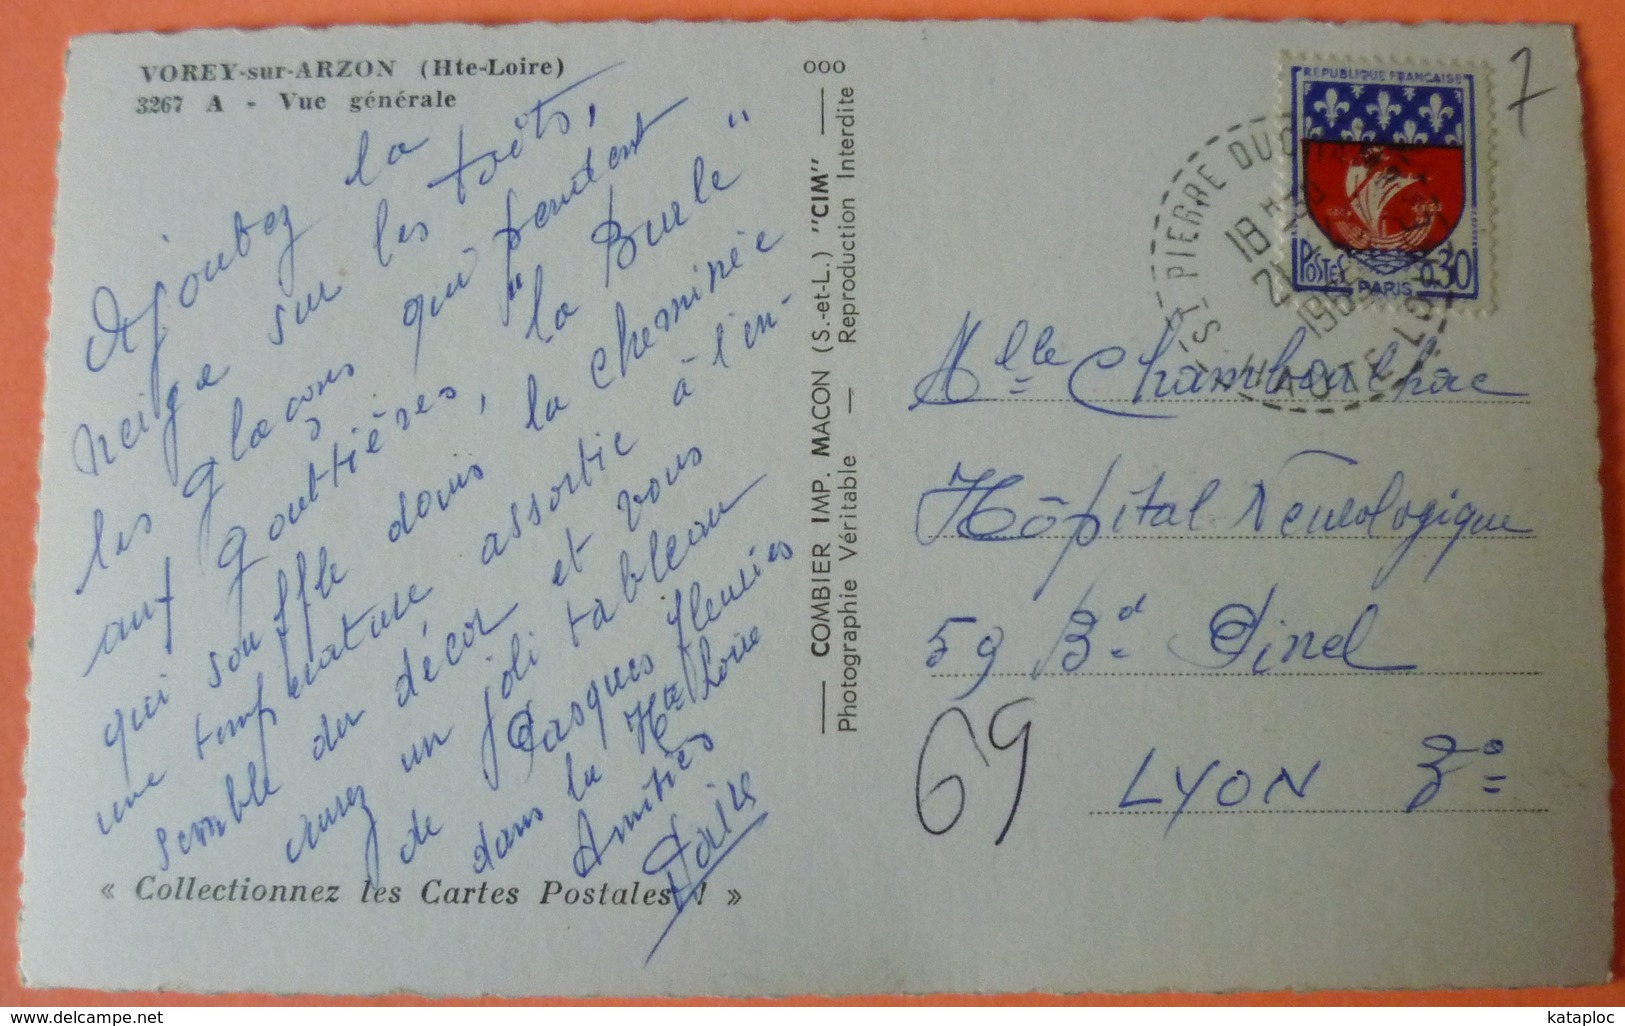 VOREY-sur-ARZON (Hte-Loire)
3267 A - Vue générale
Ajoutez la
neige sur les toits,
les glaçons qui pendent
aux gouttières, "la Burle"
qui souffle dans la cheminée
une température assortie à l'en-
semble du décor et vous
aurez un joli tableau
de Pasques fleuries
dans la Hte Loire
Amitiés
« Collectionnez les Cartes Postales ! »
COMBIER IMP. MACON (S.-et-L.) "CIM"
Photographie Véritable — Reproduction Interdite
000
REPUBLIQUE FRANÇAISE
POSTES 0,30
PARIS
ST PIERRE
18 H
21
196
HAUTE L
7
Mlle
Hôpital Neurologique
59 Bd Pinel
LYON 3°
69
delcampe.net
kataploc